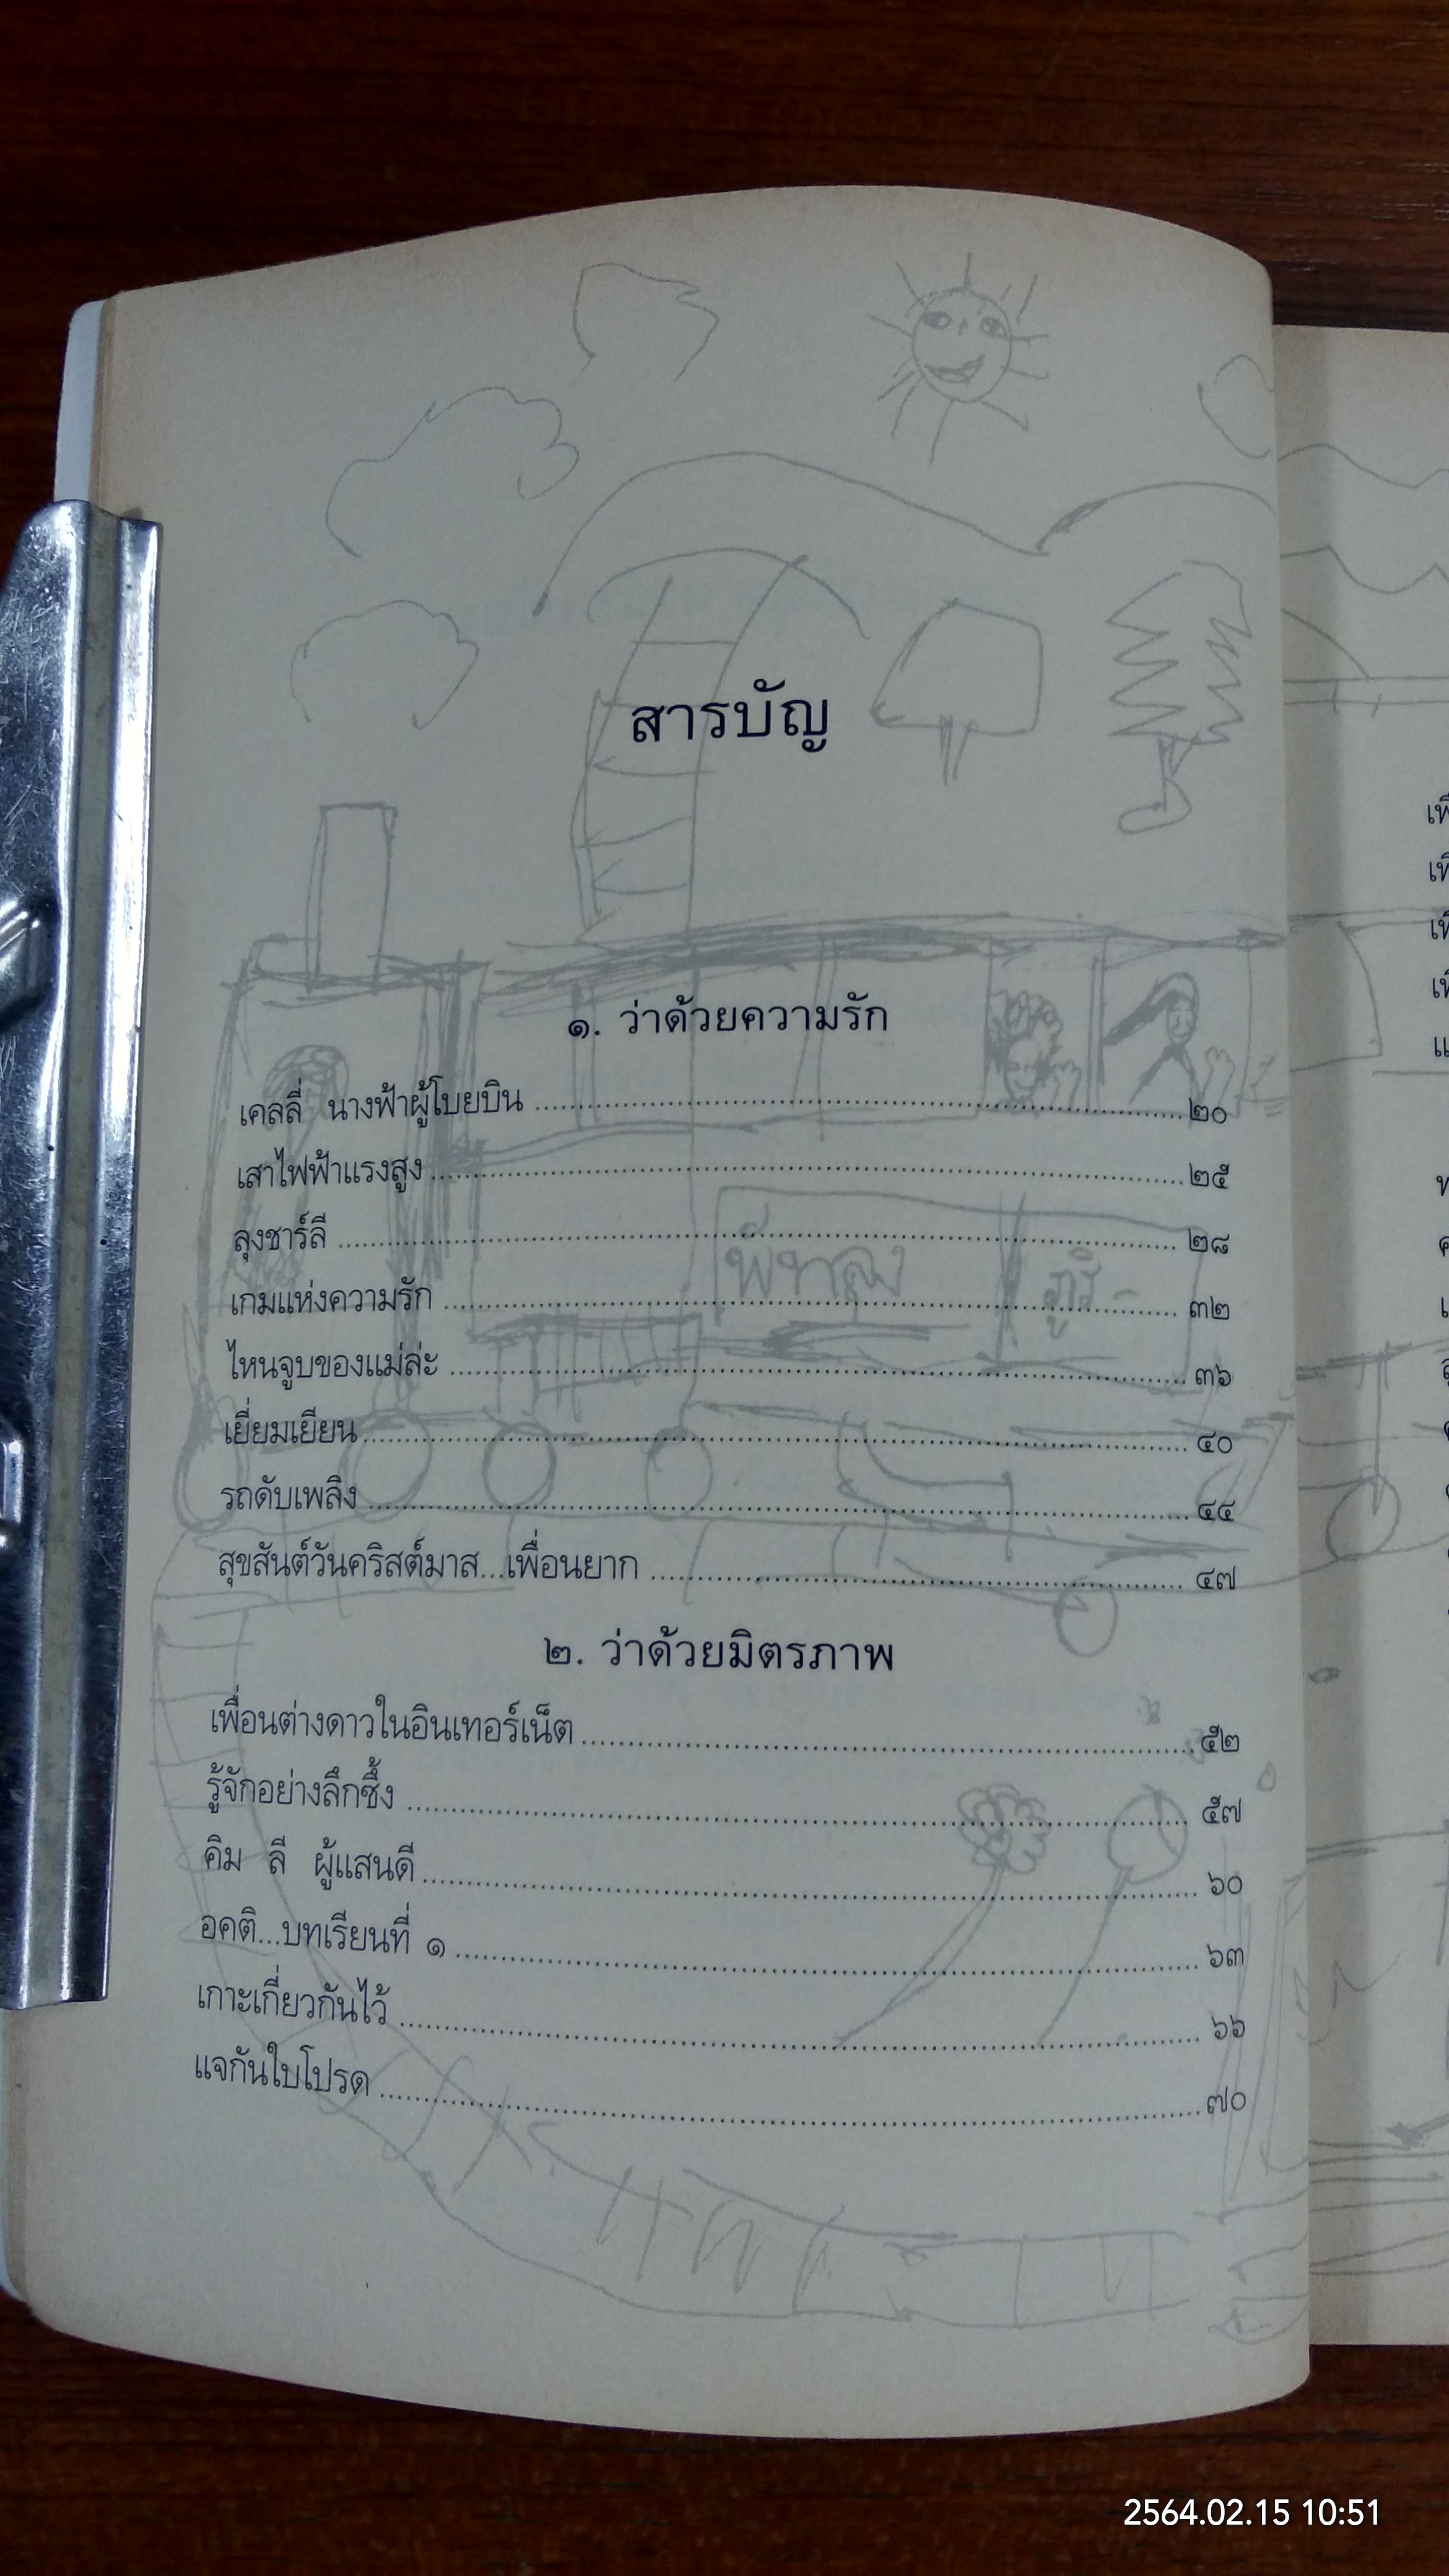 สารบัญ
๑. ว่าด้วยความรัก
เคลลี่ นางฟ้าผู้โบยบิน ๒๐
เสาไฟฟ้าแรงสูง ๒๕
ลุงชาร์ลี ๒๘
เกมแห่งความรัก ๓๒
ไหนจูบของแม่ล่ะ ๓๖
เยี่ยมเยียน ๔๐
รถดับเพลิง ๔๔
สุขสันต์วันคริสต์มาส...เพื่อนยาก ๔๗
๒. ว่าด้วยมิตรภาพ
เพื่อนต่างดาวในอินเทอร์เน็ต ๕๒
รู้จักอย่างลึกซึ้ง ๕๗
คิม ลี ผู้แสนดี ๖๐
อคติ...บทเรียนที่ ๑ ๖๓
เกาะเกี่ยวกันไว้ ๖๖
แจกันใบโปรด ๗๐
2564.02.15 10:51